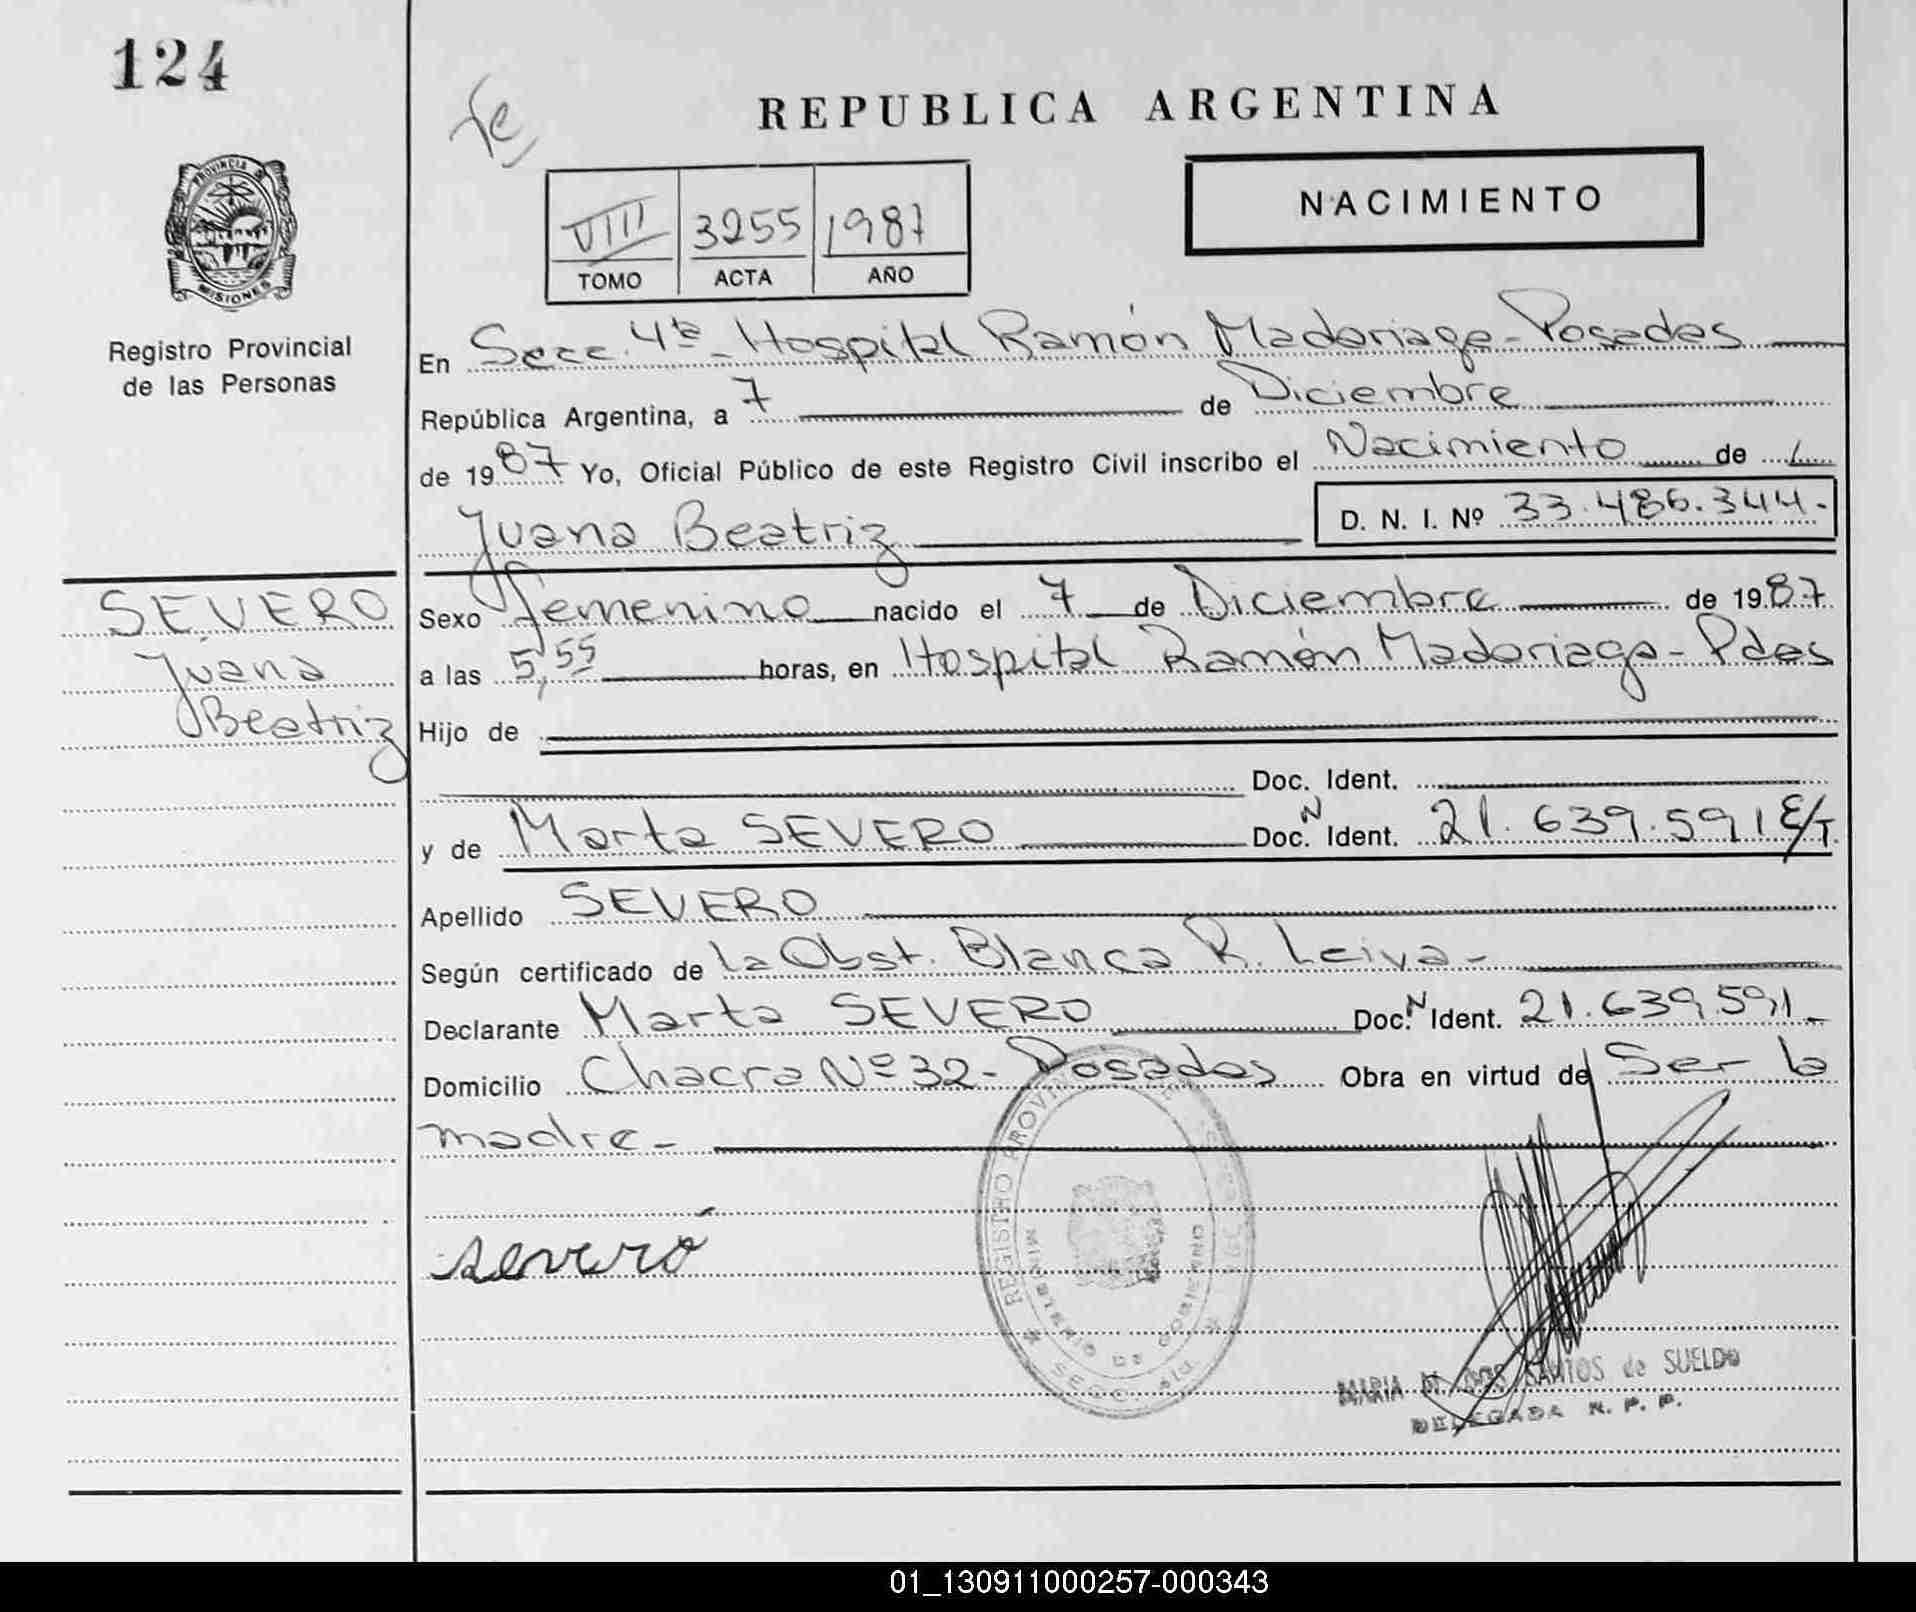 124
fe
REPUBLICA ARGENTINA
PROVINCIA DE
MISIONES
Registro Provincial
de las Personas
VIII 3255 1987
TOMO ACTA AÑO
NACIMIENTO
En Secc. 4ta - Hospital Ramón Madariaga - Posadas
República Argentina, a 7 de Diciembre
de 1987 Yo, Oficial Público de este Registro Civil inscribo el Nacimiento de
Juana Beatriz
D. N. I. Nº 33.486.344.-
SEVERO
Juana
Beatriz
Sexo femenino nacido el 7 de Diciembre de 1987
a las 5,55 horas, en Hospital Ramón Madariaga - Pdas
Hijo de
Doc. Ident.
y de Marta SEVERO Doc. N Ident. 21.639.591 E/T.
Apellido SEVERO
Según certificado de la Obst. Blanca R. Leiva -
Declarante Marta SEVERO Doc. N Ident. 21.639.591 -
Domicilio Chacra Nº 32 - Posadas Obra en virtud de Ser la
madre -
severo
REGISTRO PROVINCIAL
MINISTERIO DE GOBIERNO
SECC. 4ta
MARIA DOS SANTOS de SUELDO
DELEGADA R. P. P.
01_130911000257-000343